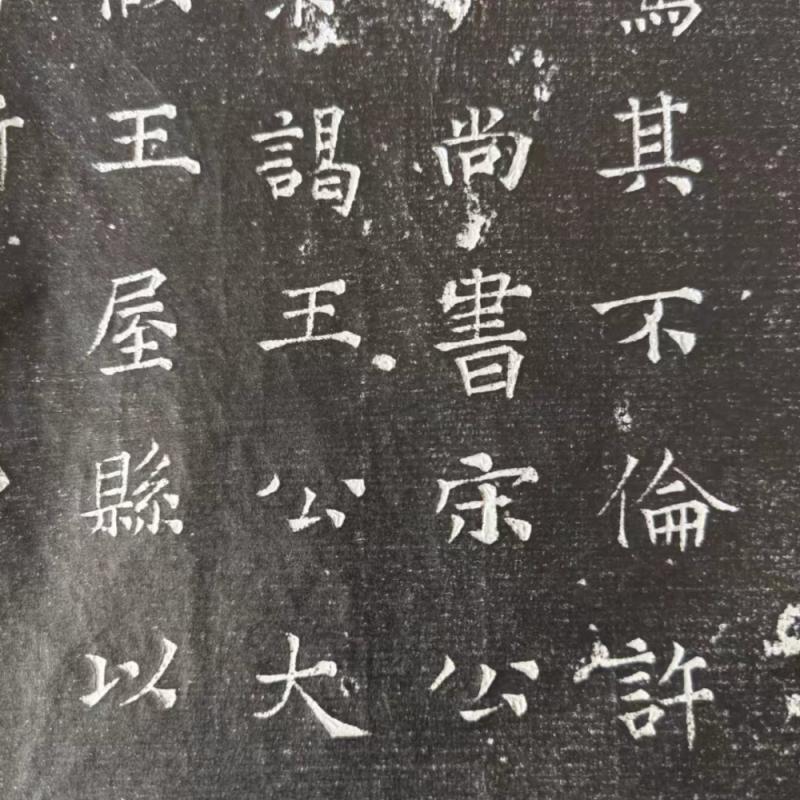 其不倫許
尚書宋公
謁王公大
王屋縣以